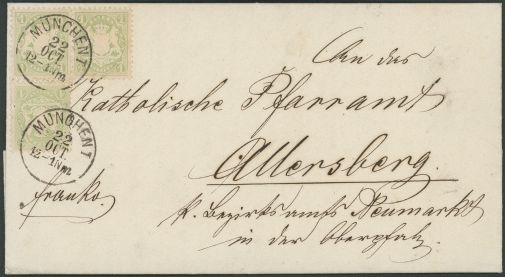 MÜNCHEN I
22
OCT.
12-1 Nm
MÜNCHEN I
22
OCT.
12-1 Nm
An das
Katholische Pfarramt
Allersberg.
k. Bezirksamts Neumarkt
in der Oberpfalz.
franko.